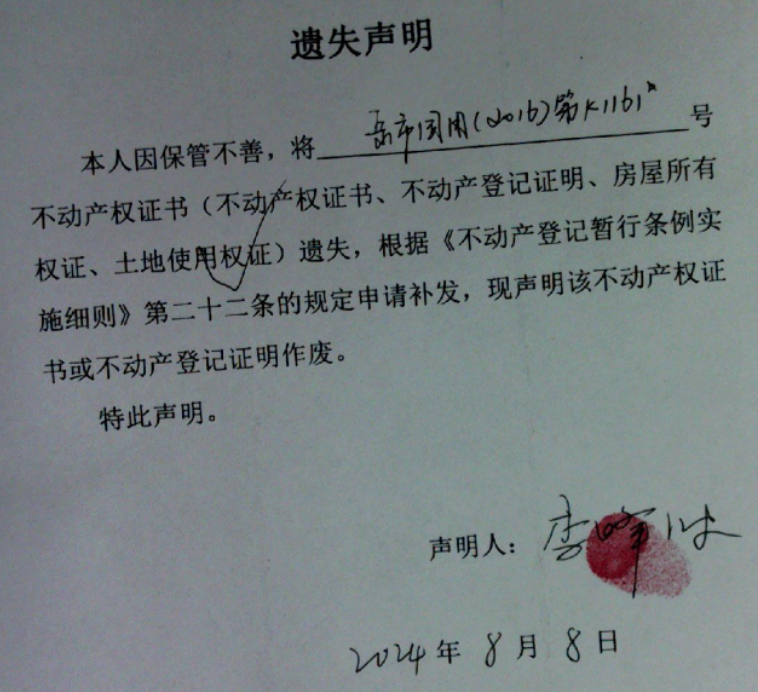 遗失声明
本人因保管不善，将岳市国用(2016)第K1161号
不动产权证书（不动产权证书、不动产登记证明、房屋所有
权证、土地使用权证）遗失，根据《不动产登记暂行条例实
施细则》第二十二条的规定申请补发，现声明该不动产权证
书或不动产登记证明作废。
特此声明。
声明人：李
2024年8月8日